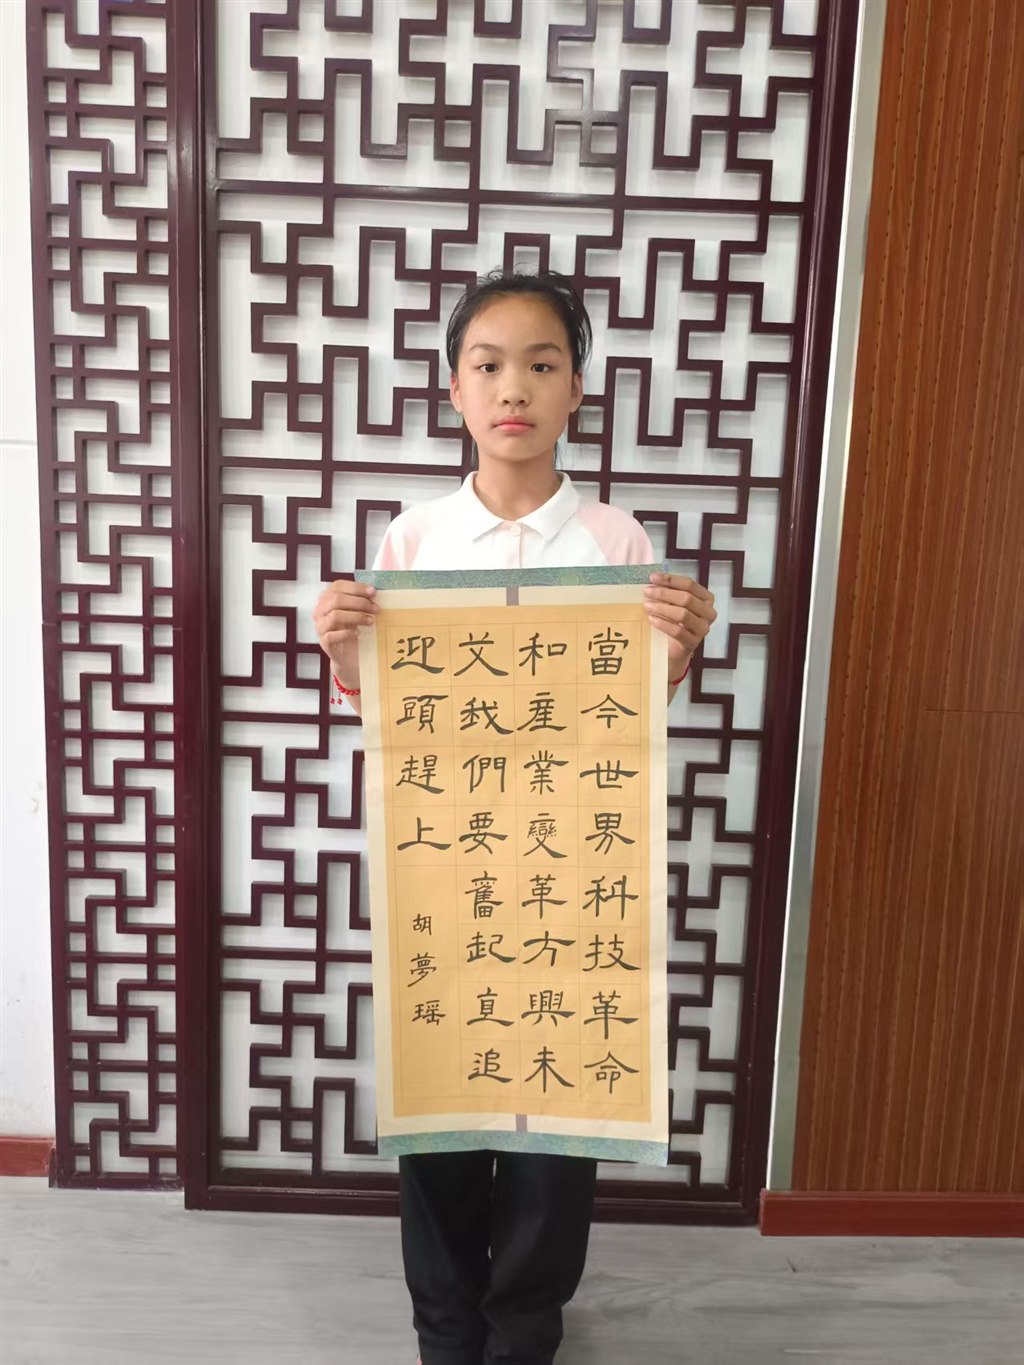 當今世界科技革命
和産業變革方興未
艾我們要奮起直追
迎頭趕上
胡夢瑶